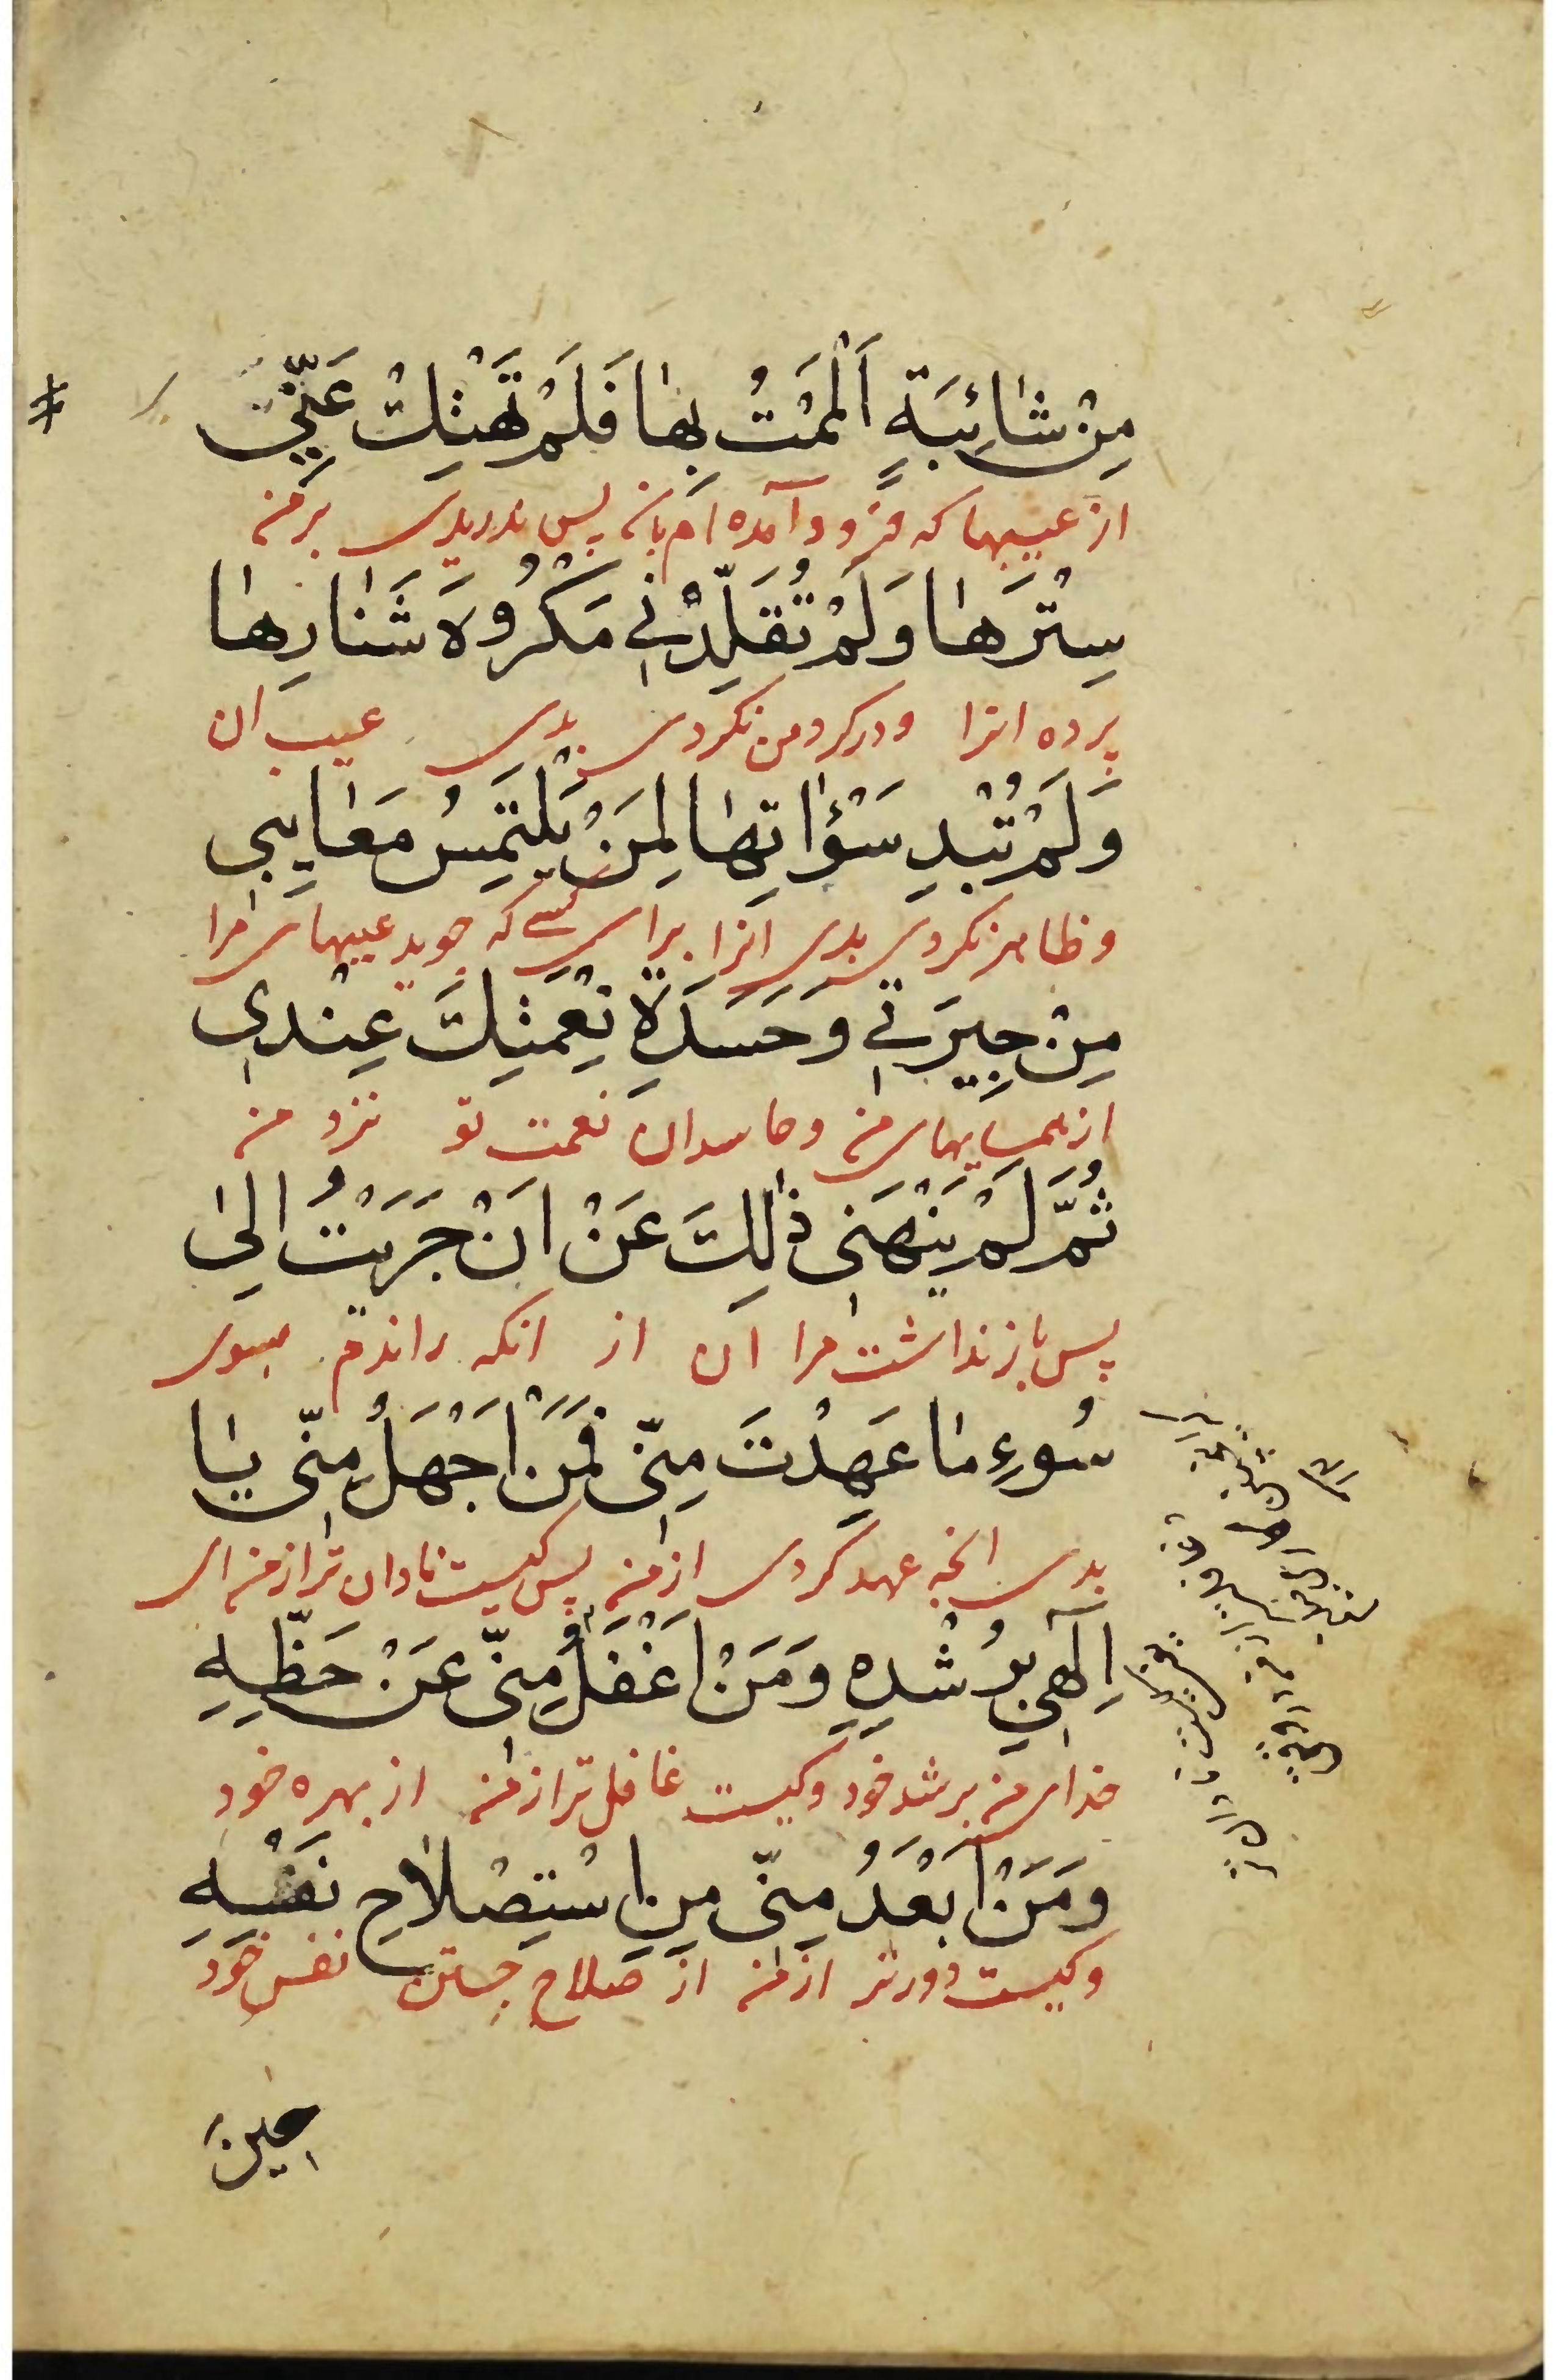 مِنْ شٰائِبَةٍ اَلْمَمْتُ بِهٰا فَلَمْ تَهْتِكْ عَنّي
از عیبها که فرود آمده ام بآن پس ندریدی بر من
سِتْرَهٰا وَلَمْ تُقَلِّدْني مَكْرُوهَ شَنٰارِهٰا
پرده انرا ودر کردمن نکردی بدی عیب ان
وَلَمْ تُبْدِ سَوْاٰتِهٰا لِمَنْ يَلْتَمِسُ مَعٰايِبي
و ظاهر نکردی بدی انرا برای کسی که جوید عیبهای مرا
مِنْ جِيرَتي وَحَسَدَةِ نِعْمَتِكَ عِنْدي
از همسایهای من وحاسدان نعمت تو نزد من
ثُمَّ لَمْ يَنْهَنى ذٰلِكَ عَنْ اَنْ جَرَيْتُ اِلىٰ
پس باز نداشت مرا ان از انکه راندم بسوی
سُوءِ مٰا عَهِدْتَ مِنّى فَمَنْ اَجْهَلُ مِنّى يٰا
بدی انچه عهد کردی از من پس کیست نادان تر از من ای
اِلٰهي بِرُشْدِهِ وَمَنْ اَغْفَلُ مِنّى عَنْ حَظِّهِ
خدای من برشد خود وکیست غافل تر از من از بهره خود
وَمَنْ اَبْعَدُ مِنّى مِنِ اسْتِصْلاٰحِ نَفْسِهِ
وکیست دورتر از من از صلاح جستن نفس خود
حينَ